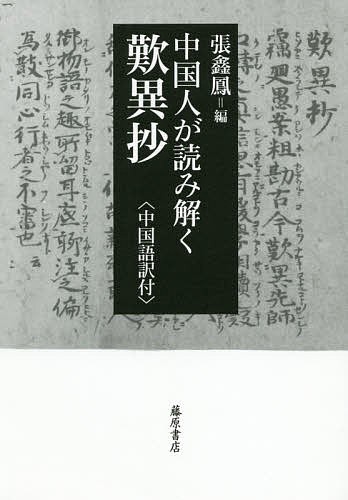 張鑫鳳=編
中国人が読み解く
歎異抄
〈中国語訳付〉
歎異抄
竊廻愚案粗勘古今歎異先師
御物語之趣所留耳底聊注之偏
為散同心行者之不審也
藤原書店